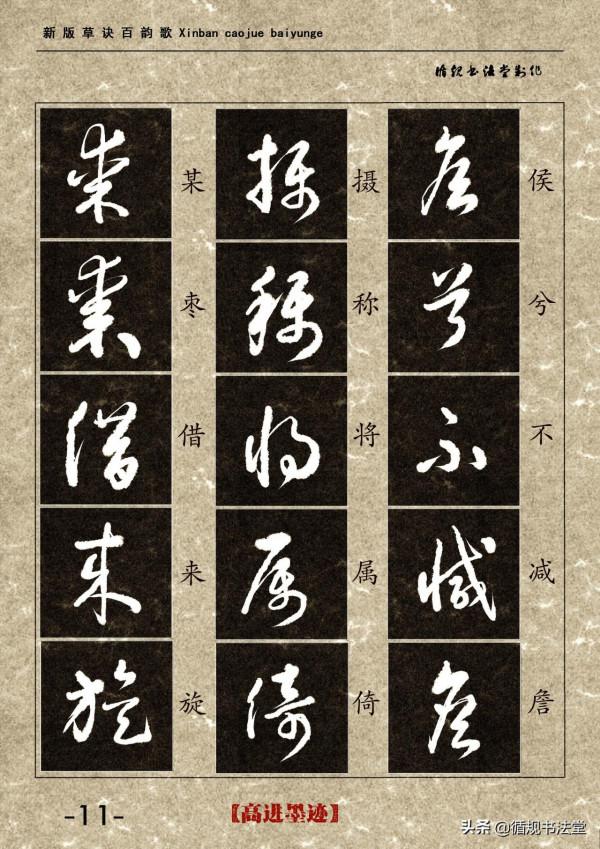 新版草诀百韵歌 Xinban caojue baiyunge
循规书法堂制作
侯兮不减詹
摄称将属倚
某枣借来旋
-11-
【高进墨迹】
头条 @循规书法堂